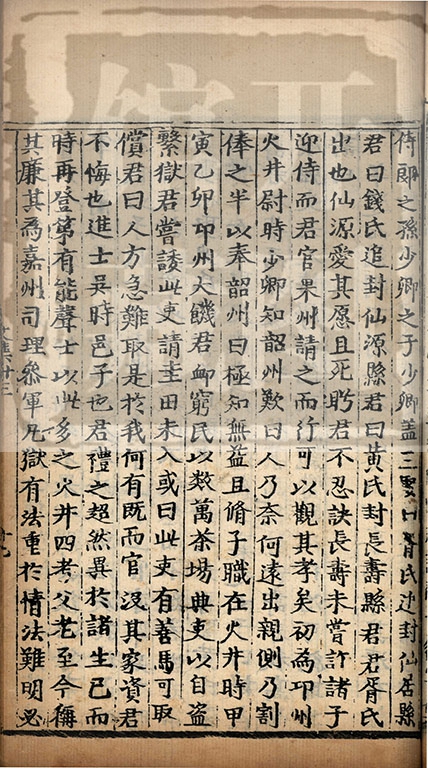 侍郎之孫少卿之子少卿蓋三娶曰胥氏追封仙居縣
君曰錢氏追封仙源縣君曰黃氏封長壽縣君君胥氏
出也仙源愛其愿且死眄君不忍訣長壽未嘗許諸子
迎侍而君官果州請之而行可以觀其孝矣初為邛州
火井尉時少卿知韶州歎曰人乃奈何遠出親側乃割
俸之半以奉韶州曰極知無益且脩子職在火井時甲
寅乙卯邛州大饑君䘏窮民以數萬茶場典吏以自盜
繫獄君嘗諉此吏請圭田未入或曰此吏有善馬可取
償君曰人方急難取是於我何有既而官沒其家資君
不悔也進士吳時邑子也君禮之超然異於諸生已而
時再登第有能聲士以此多之火井四考父老至今稱
其廉其為嘉州司理叅軍凡獄有法重於情法難明必